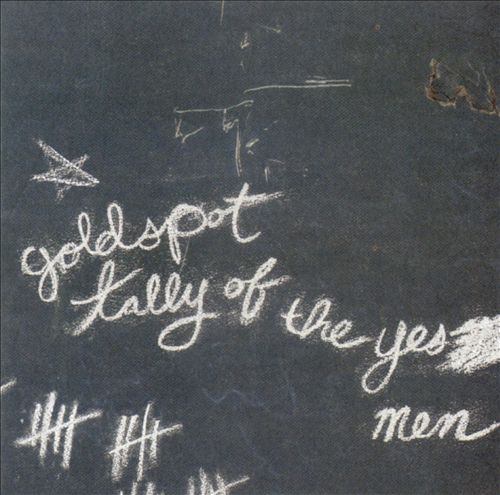 goldspot
tally of the yes
men